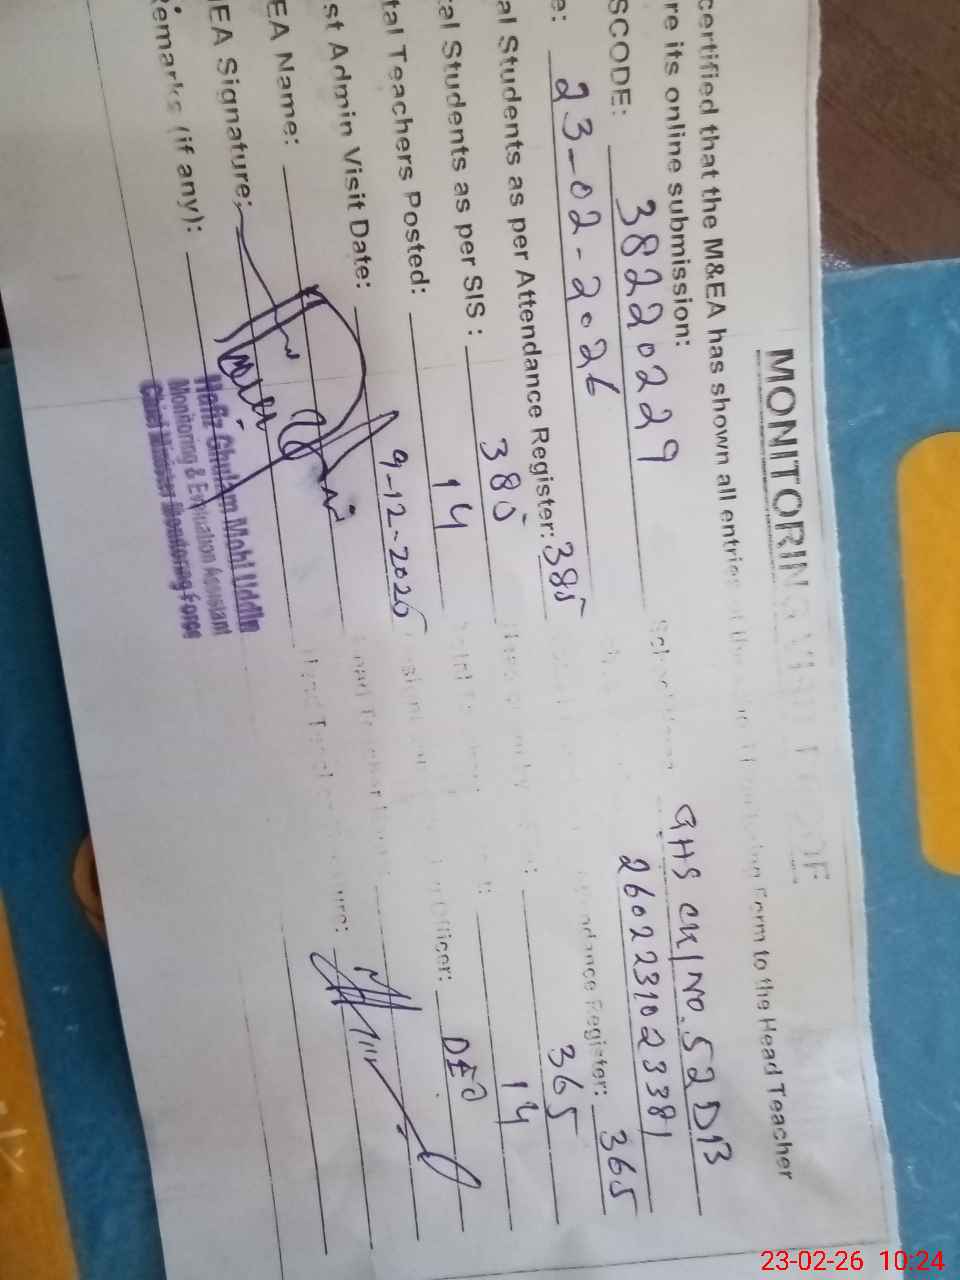 MONITORING VISIT PROOF
certified that the M&EA has shown all entries of the Monitoring Form to the Head Teacher
re its online submission:
SCODE: 38220229
GHS CH/NO. 52 DB
e: 23-02-2026
2602231023381
al Students as per Attendance Register: 385
Attendance Register: 365
tal Students as per SIS : 385
365
tal Teachers Posted: 14
14
st Admin Visit Date: 9-12-2025
Officer: DEO
EA Name:
EA Signature:
Remarks (if any):
Hafiz Ghulam Mohi Uddin
Monitoring & Evaluation Assistant
Chief Minister Monitoring Force
23-02-26 10:24